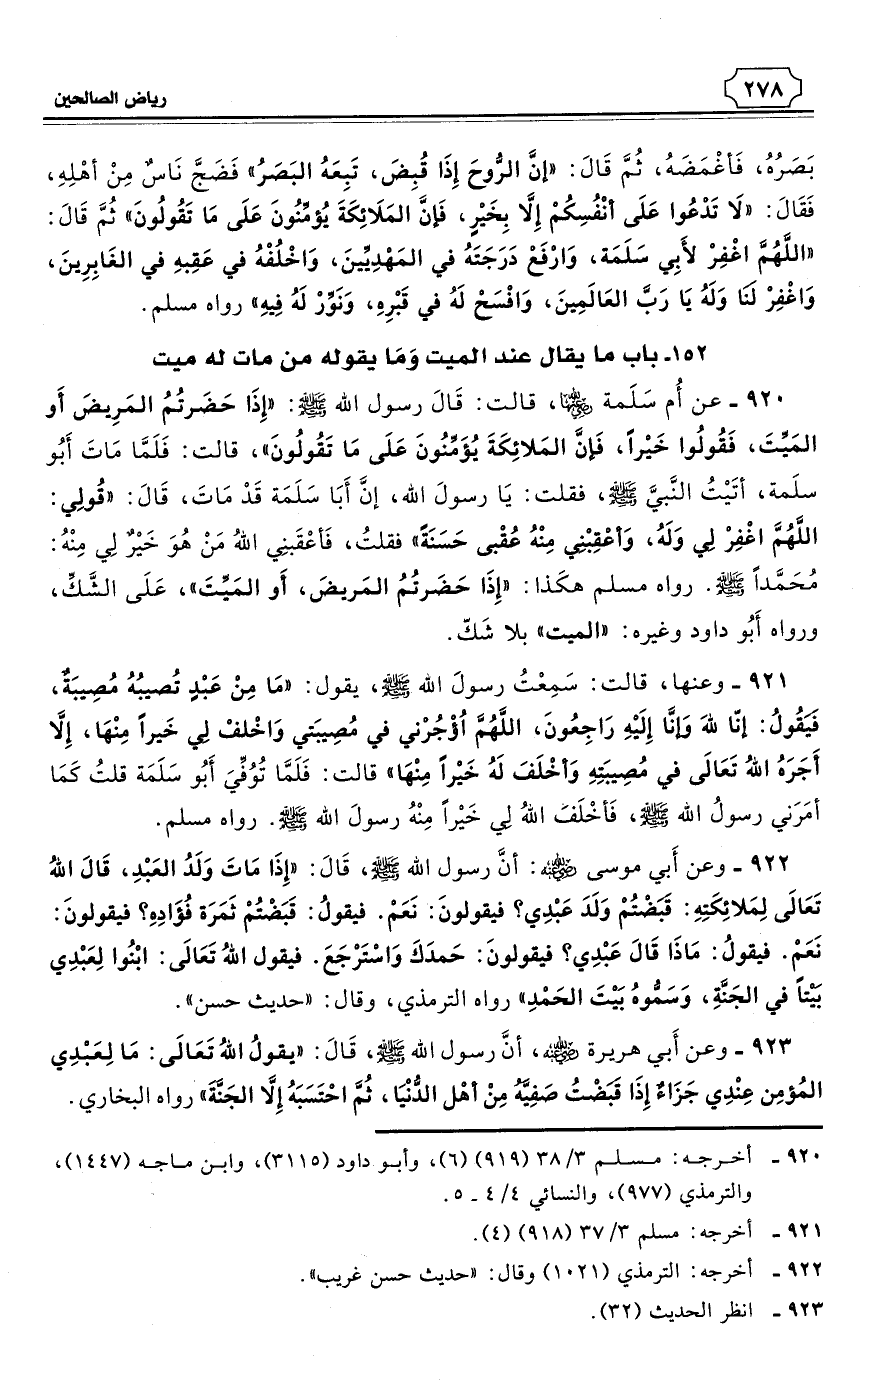 ٢٧٨
رياض الصالحين
بَصَرُهُ، فَأغْمَضَهُ، ثُمَّ قَالَ: «إنَّ الرُّوحَ إِذَا قُبِضَ، تَبِعَهُ البَصَرُ» فَضَجَّ نَاسٌ مِنْ أهْلِهِ،
فَقَالَ: «لَا تَدْعُوا عَلَى أنْفُسِكُمْ إِلَّا بِخَيْرٍ، فَإنَّ المَلَائِكَةَ يُؤَمِّنُونَ عَلَى مَا تَقُولُونَ» ثُمَّ قَالَ:
«اللَّهُمَّ اغْفِرْ لأَبِي سَلَمَة، وَارْفَعْ دَرَجَتَهُ في المَهْدِيِّينَ، وَاخْلُفْهُ في عَقِبهِ في الغَابِرِينَ،
وَاغْفِرْ لَنَا وَلَهُ يَا رَبَّ العَالَمِينَ، وَافْسَحْ لَهُ في قَبْرِهِ، وَنَوِّرْ لَهُ فِيهِ» رواه مسلم.
١٥٢ـ باب ما يقال عند الميت وَمَا يقوله من مات له ميت
٩٢٠ ـ عن أُم سَلَمة رضي الله عنها، قالت: قَالَ رسول الله ﷺ: «إِذَا حَضَرتُمُ المَرِيضَ أَو
المَيِّتَ، فَقُولُوا خَيْراً، فَإنَّ المَلائِكَةَ يُؤَمِّنُونَ عَلَى مَا تَقُولُونَ»، قالت: فَلَمَّا مَاتَ أَبُو
سلَمة، أتَيْتُ النَّبيَّ ﷺ، فقلت: يَا رسولَ الله، إنَّ أَبَا سَلَمَة قَدْ مَاتَ، قَالَ: «قُولِي:
اللَّهُمَّ اغْفِرْ لِي وَلَهُ، وَأعْقِبْنِي مِنْهُ عُقْبى حَسَنَةً» فقلتُ، فَأعْقَبَنِي اللهُ مَنْ هُوَ خَيْرٌ لِي مِنْهُ:
مُحَمَّداً ﷺ. رواه مسلم هكَذا: «إِذَا حَضَرتُمُ المَريضَ، أَو المَيِّتَ»، عَلَى الشَّكِّ،
ورواه أَبُو داود وغيره: «الميت» بلا شَكّ.
٩٢١ ـ وعنها، قالت: سَمِعْتُ رسولَ الله ﷺ، يقول: «مَا مِنْ عَبْدٍ تُصيبُهُ مُصِيبَةٌ،
فَيَقُولُ: إنّا للهِ وَإنَّا إِلَيْهِ رَاجِعُونَ، اللَّهُمَّ اؤْجُرْنِي في مُصِيبَتي وَاخْلفْ لِي خَيراً مِنْهَا، إِلَّا
أَجَرَهُ اللهُ تَعَالَى في مُصِيبَتِهِ وَأخْلَفَ لَهُ خَيْراً مِنْهَا» قالت: فَلَمَّا تُوُفِّيَ أَبُو سَلَمَة قلتُ كَمَا
أمَرَني رسولُ الله ﷺ، فَأخْلَفَ اللهُ لِي خَيْراً مِنْهُ رسولَ الله ﷺ. رواه مسلم.
٩٢٢ ـ وعن أَبي موسى رضي الله عنه: أنَّ رسول الله ﷺ، قَالَ: «إِذَا مَاتَ وَلَدُ العَبْدِ، قَالَ اللهُ
تَعَالَى لِمَلائِكَتِهِ: قَبَضْتُمْ وَلَدَ عَبْدِي؟ فيقولونَ: نَعَمْ. فيقولُ: قَبَضْتُمْ ثَمَرَة فُؤَادِهِ؟ فيقولونَ:
نَعَمْ. فيقولُ: مَاذَا قَالَ عَبْدِي؟ فيقولونَ: حَمدَكَ وَاسْتَرْجَعَ. فيقول اللهُ تَعَالَى: ابْنُوا لِعَبْدِي
بَيْتاً في الجَنَّةِ، وَسَمُّوهُ بَيْتَ الحَمْدِ» رواه الترمذي، وقال: «حديث حسن».
٩٢٣ ـ وعن أَبي هريرة رضي الله عنه، أنَّ رسول الله ﷺ، قَالَ: «يقولُ اللهُ تَعَالَى: مَا لِعَبْدِي
المُؤمِن عِنْدِي جَزَاءٌ إِذَا قَبَضْتُ صَفِيَّهُ مِنْ أهْلِ الدُّنْيَا، ثُمَّ احْتَسَبَهُ إِلَّا الجَنَّةَ» رواه البخاري.
٩٢٠ ـ أخرجه: مسلم ٣/ ٣٨ (٩١٩) (٦)، وأبو داود (٣١١٥)، وابن ماجه (١٤٤٧)،
والترمذي (٩٧٧)، والنسائي ٤/ ٤ ـ ٥.
٩٢١ ـ أخرجه: مسلم ٣/ ٣٧ (٩١٨) (٤).
٩٢٢ ـ أخرجه: الترمذي (١٠٢١) وقال: «حديث حسن غريب».
٩٢٣ ـ انظر الحديث (٣٢).